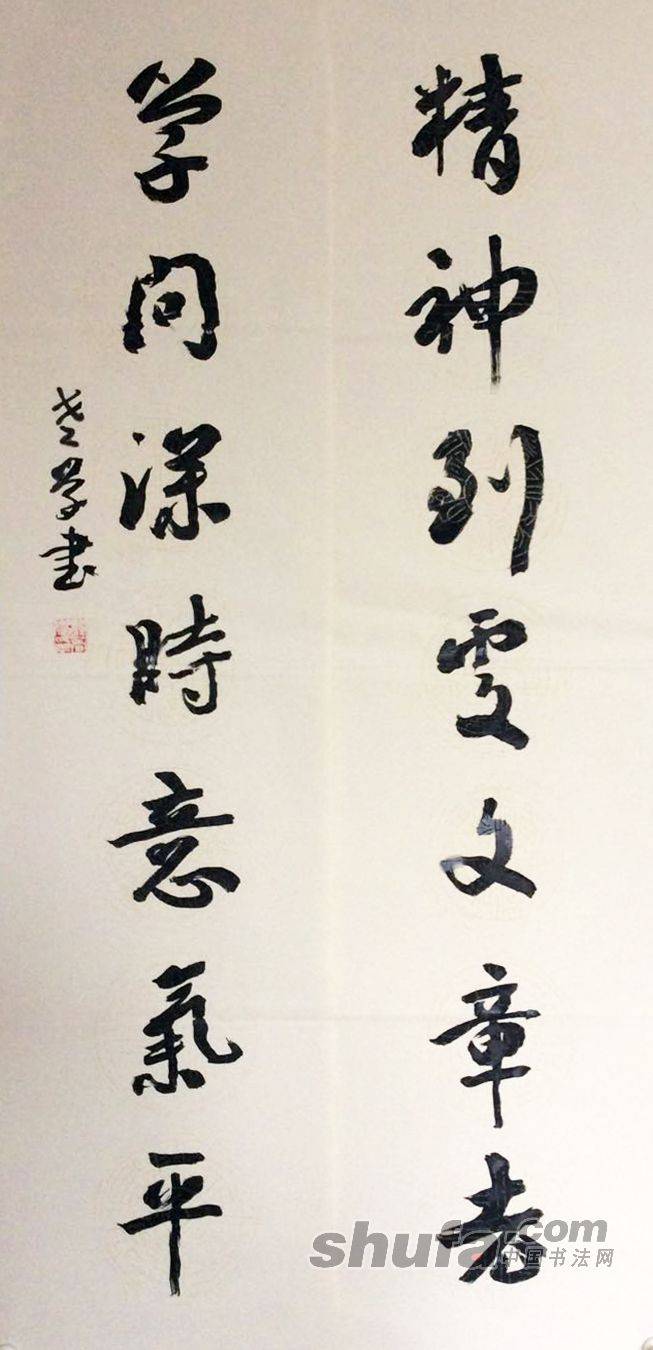 精神到處文章老
学问深時意氣平
老学書
shufa.com
中国书法网